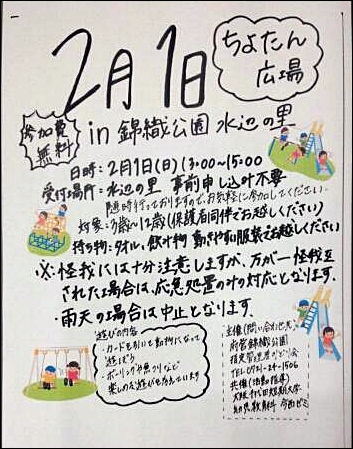 2月1日
ちよたん
広場
参加費
無料
in 錦織公園 水辺の里
日時:2月1日(日)13:00~15:00
受付場所:水辺の里 事前申し込み不要
随時行っておりますので、お気軽に参加してください。
対象:3歳~12歳(保護者同伴でお越しください)
持ち物:タオル、飲み物 動きやすい服装でお越しください
※怪我には十分注意しますが、万が一怪我を
された場合は、応急処置のみの対応となります。
・雨天の場合は中止となります。
遊びの内容
・カードを引いて動物になって
遊ぼう
・ボーリングや魚つりなど
楽しめる遊びも考えています
主催(問い合わせ先)
府営錦織公園
指定管理者
TEL 0721-24-1506
共催(活動指導)
大阪千代田短期大学
幼児教育科